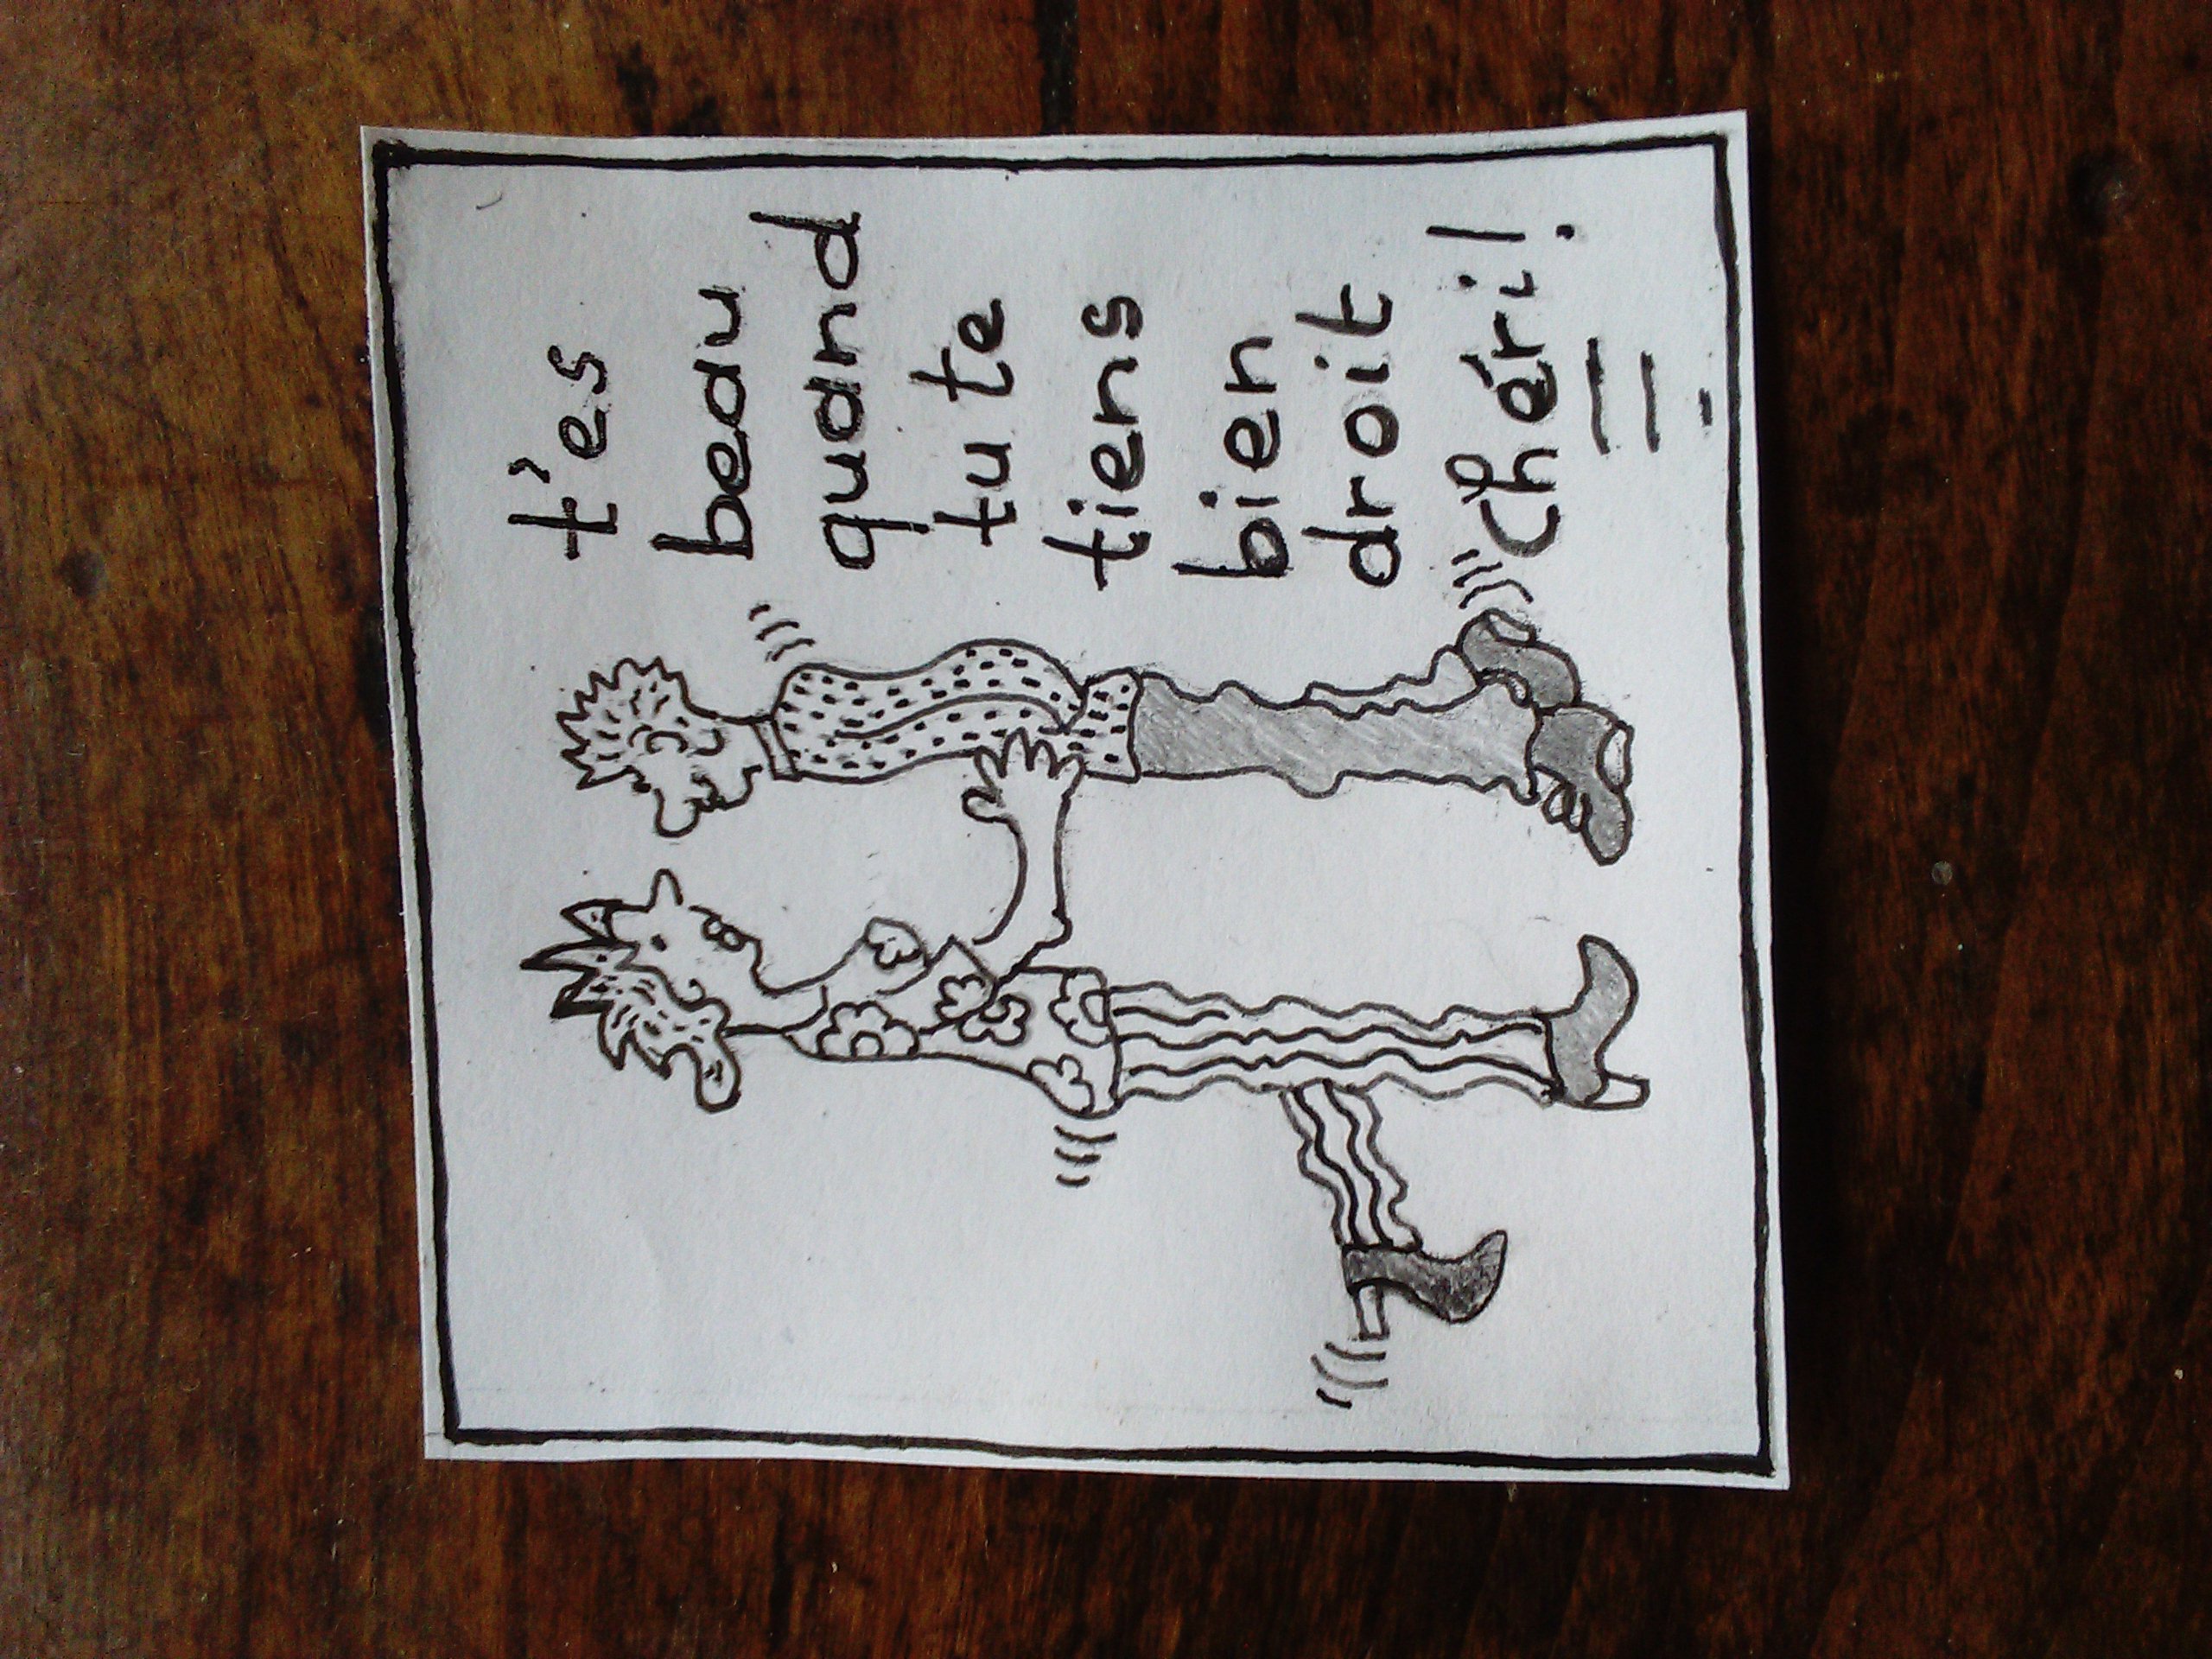 t'es
beau
quand
tu te
tiens
bien
droit
chéri!